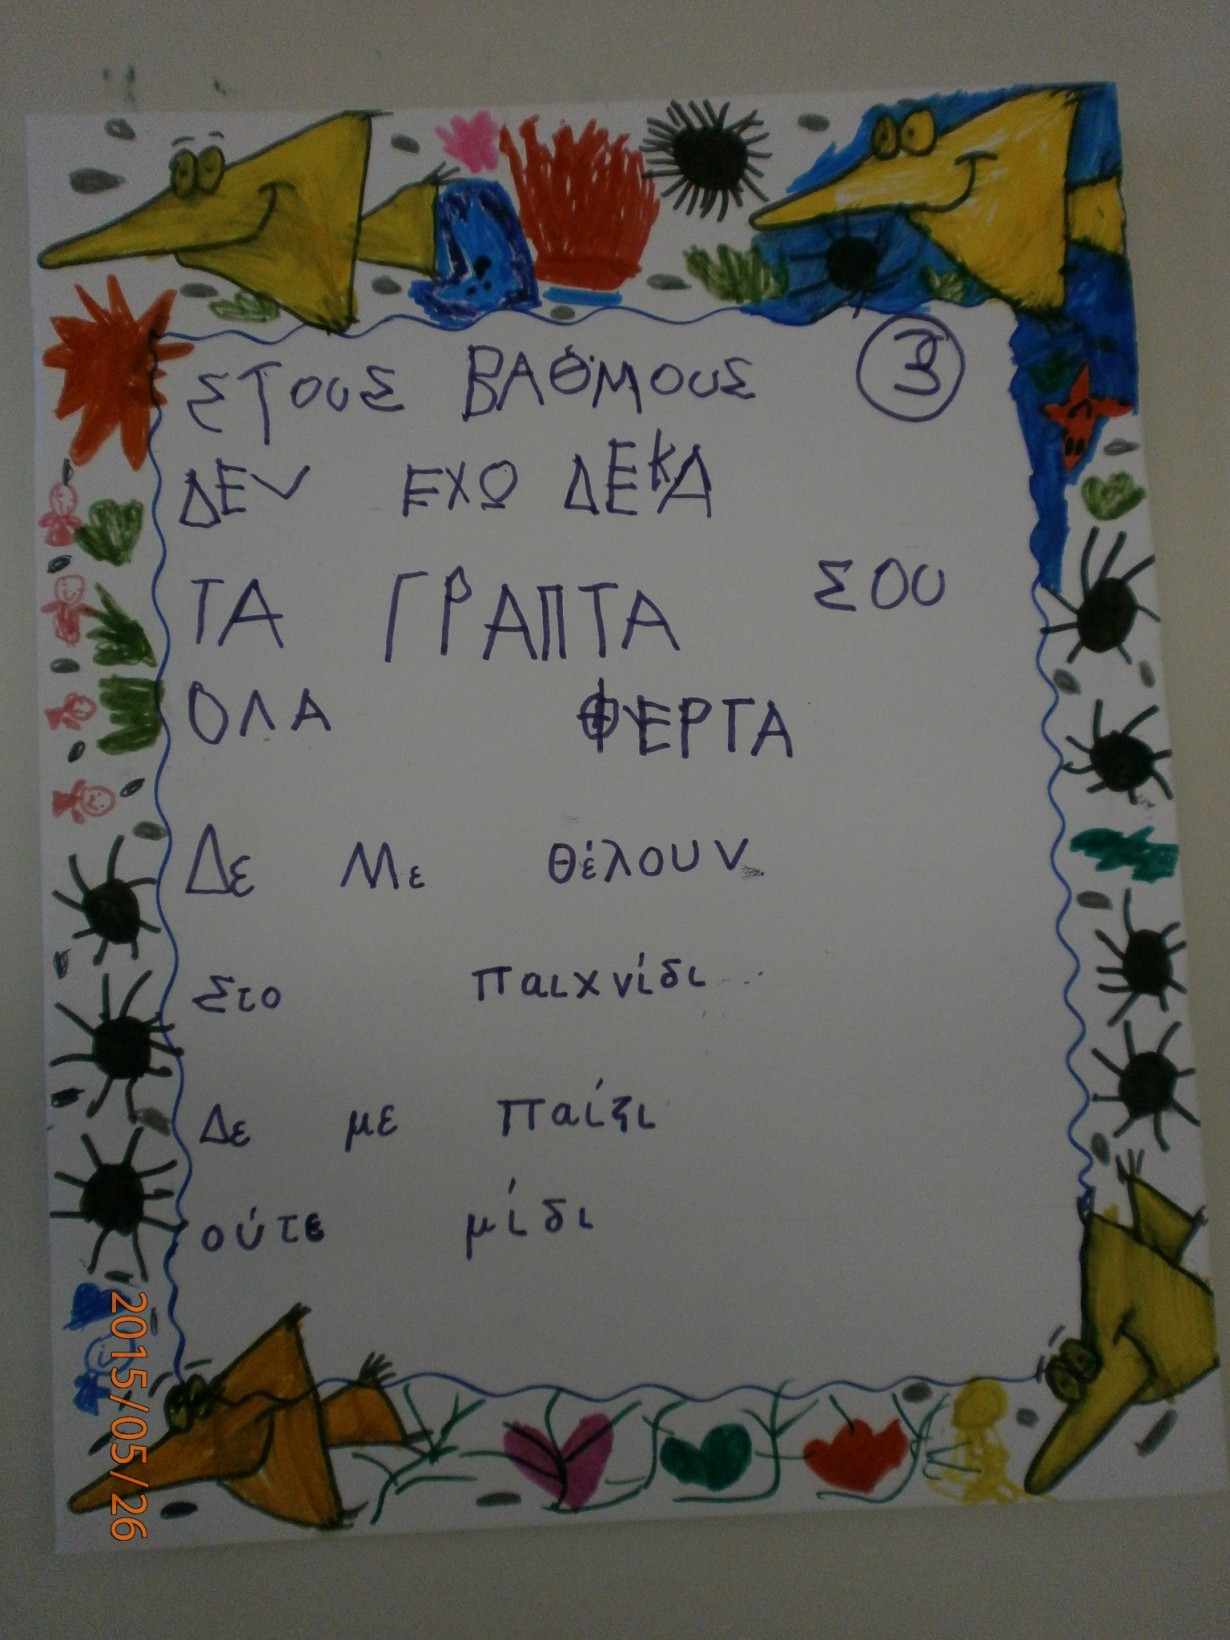 ΣΤΟΥΣ ΒΑΘΜΟΥΣ 3
ΔΕΝ ΕΧΩ ΔΕΚΑ
ΤΑ ΓΡΑΠΤΑ ΣΟΥ
ΟΛΑ ΦΕΡΤΑ
Δε Με θέλουν
Στο παιχνίδι
Δε με παίζι
ούτε μίδι
2015/05/26